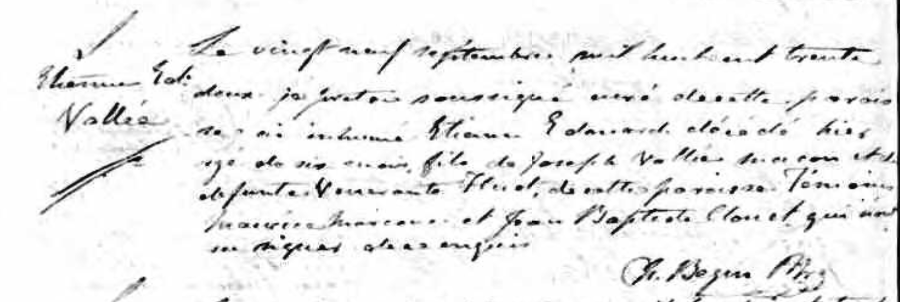 Etienne Ed:
Vallée
Le vingt neuf septembre mil huit cent trente
deux je pretre soussigné curé de cette parois
se ai inhumé Etienne Edouard décédé hier
agé de six mois, fils de Joseph Vallée macon et de
defunte Venerante Huot, de cette paroisse. Témoins
Maurice et Jean Baptiste Clouet qui n'ont
su signer de ce enquis
Ch. Begin Ptre